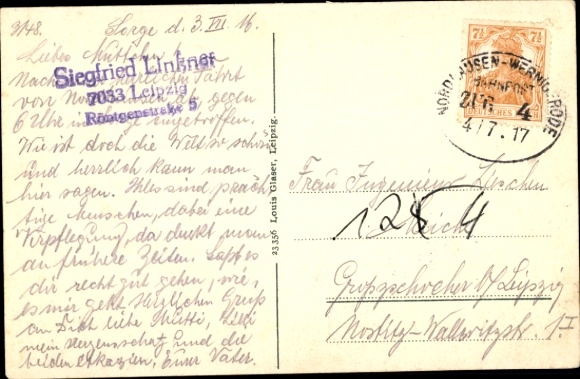 3148.
Sorge d. 3. VII. 16
Liebe Mutti
Nach herrlicher Fahrt
von Nordhausen gegen
6 Uhr in Sorge eingetroffen.
Wie ist doch die Welt so schön
und herrlich kann man
hier sagen. Alles sind präch-
tige Menschen, dabei eine
Verpflegung, da denkt man
an frühere Zeiten. Laßt es
dir recht gut gehen, wie
es mir geht. Herzlichen Gruß
an Dich liebe Mutti,
mein Herzensschatz und die
beiden Eure Vater.
Siegfried Linkner
7033 Leipzig
Röntgenstraße 5
23356 Louis Glaser, Leipzig.
7½ 7½
DEUTSCHES REICH
NORDHAUSEN-WERNIGERODE
BAHNPOST
ZUG 4
4/7.17
Frau Ingenieur
128 4
Großzschocher b/Leipzig
Nostitz-Wallwitzstr. 1 I